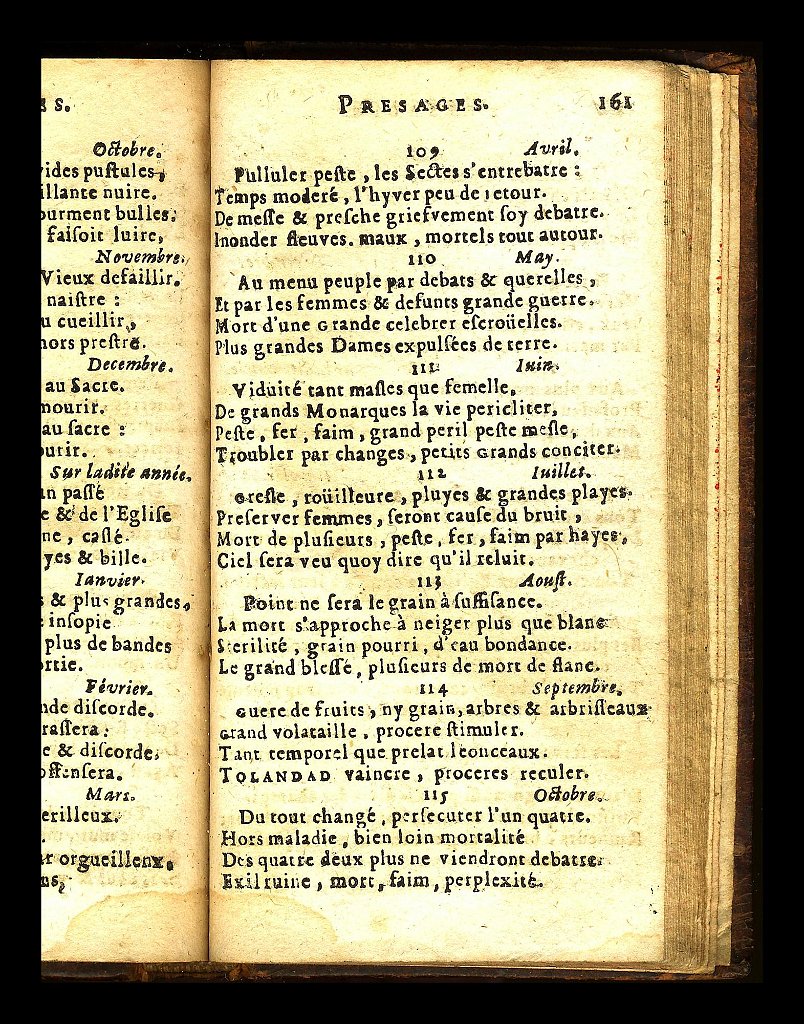 ES.
Octobre.
vides puſtules,
illante nuire.
ourment bulles:
faiſoit luire,
Novembre.
Vieux defaillir.
naiſtre :
u cueillir,
hors preſtre.
Decembre.
au Sacre.
mourir.
au ſacre :
ourir.
Sur ladite année.
un paſſé
e & de l'Egliſe
ne, caſſé.
yes & bille.
Ianvier.
s & plus grandes,
e inſopie
plus de bandes
ortie.
Février.
nde diſcorde.
raſſera:
e & diſcorde,
offenſera.
Mars.
erilleux.
ar orgueilleux,
ns,
PRESAGES. 161
109 Avril.
Pulluler peſte, les Sectes s'entrebatre :
Temps moderé, l'hyver peu de retour.
De meſſe & preſche griefvement ſoy debatre.
Inonder fleuves. maux, mortels tout autour.
110 May.
Au menu peuple par debats & querelles,
Et par les femmes & defunts grande guerre.
Mort d'une Grande celebrer eſcroüelles.
Plus grandes Dames expulſées de terre.
111 Iuin.
Viduité tant maſles que femelle,
De grands Monarques la vie pericliter,
Peſte, fer, faim, grand peril peſte meſle,
Troubler par changes, petits Grands conciter.
112 Iuillet.
Greſle, roüilleure, pluyes & grandes playes.
Preſerver femmes, ſeront cauſe du bruit,
Mort de pluſieurs, peſte, fer, faim par hayes,
Ciel ſera veu quoy dire qu'il reluit.
113 Aouſt.
Point ne ſera le grain à ſuffiſance.
La mort s'approche à neiger plus que blanc
Sterilité, grain pourri, d'eau bondance.
Le grand bleſſé, pluſieurs de mort de flanc.
114 Septembre.
Guere de fruits, ny grain, arbres & arbriſſeaux
Grand volataille, procere ſtimuler.
Tant temporel que prelat leonceaux.
TOLANDAD vaincre, proceres reculer.
115 Octobre.
Du tout changé, perſecuter l'un quatre.
Hors maladie, bien loin mortalité
Des quatre deux plus ne viendront debatre.
Exil ruine, mort, faim, perplexité.